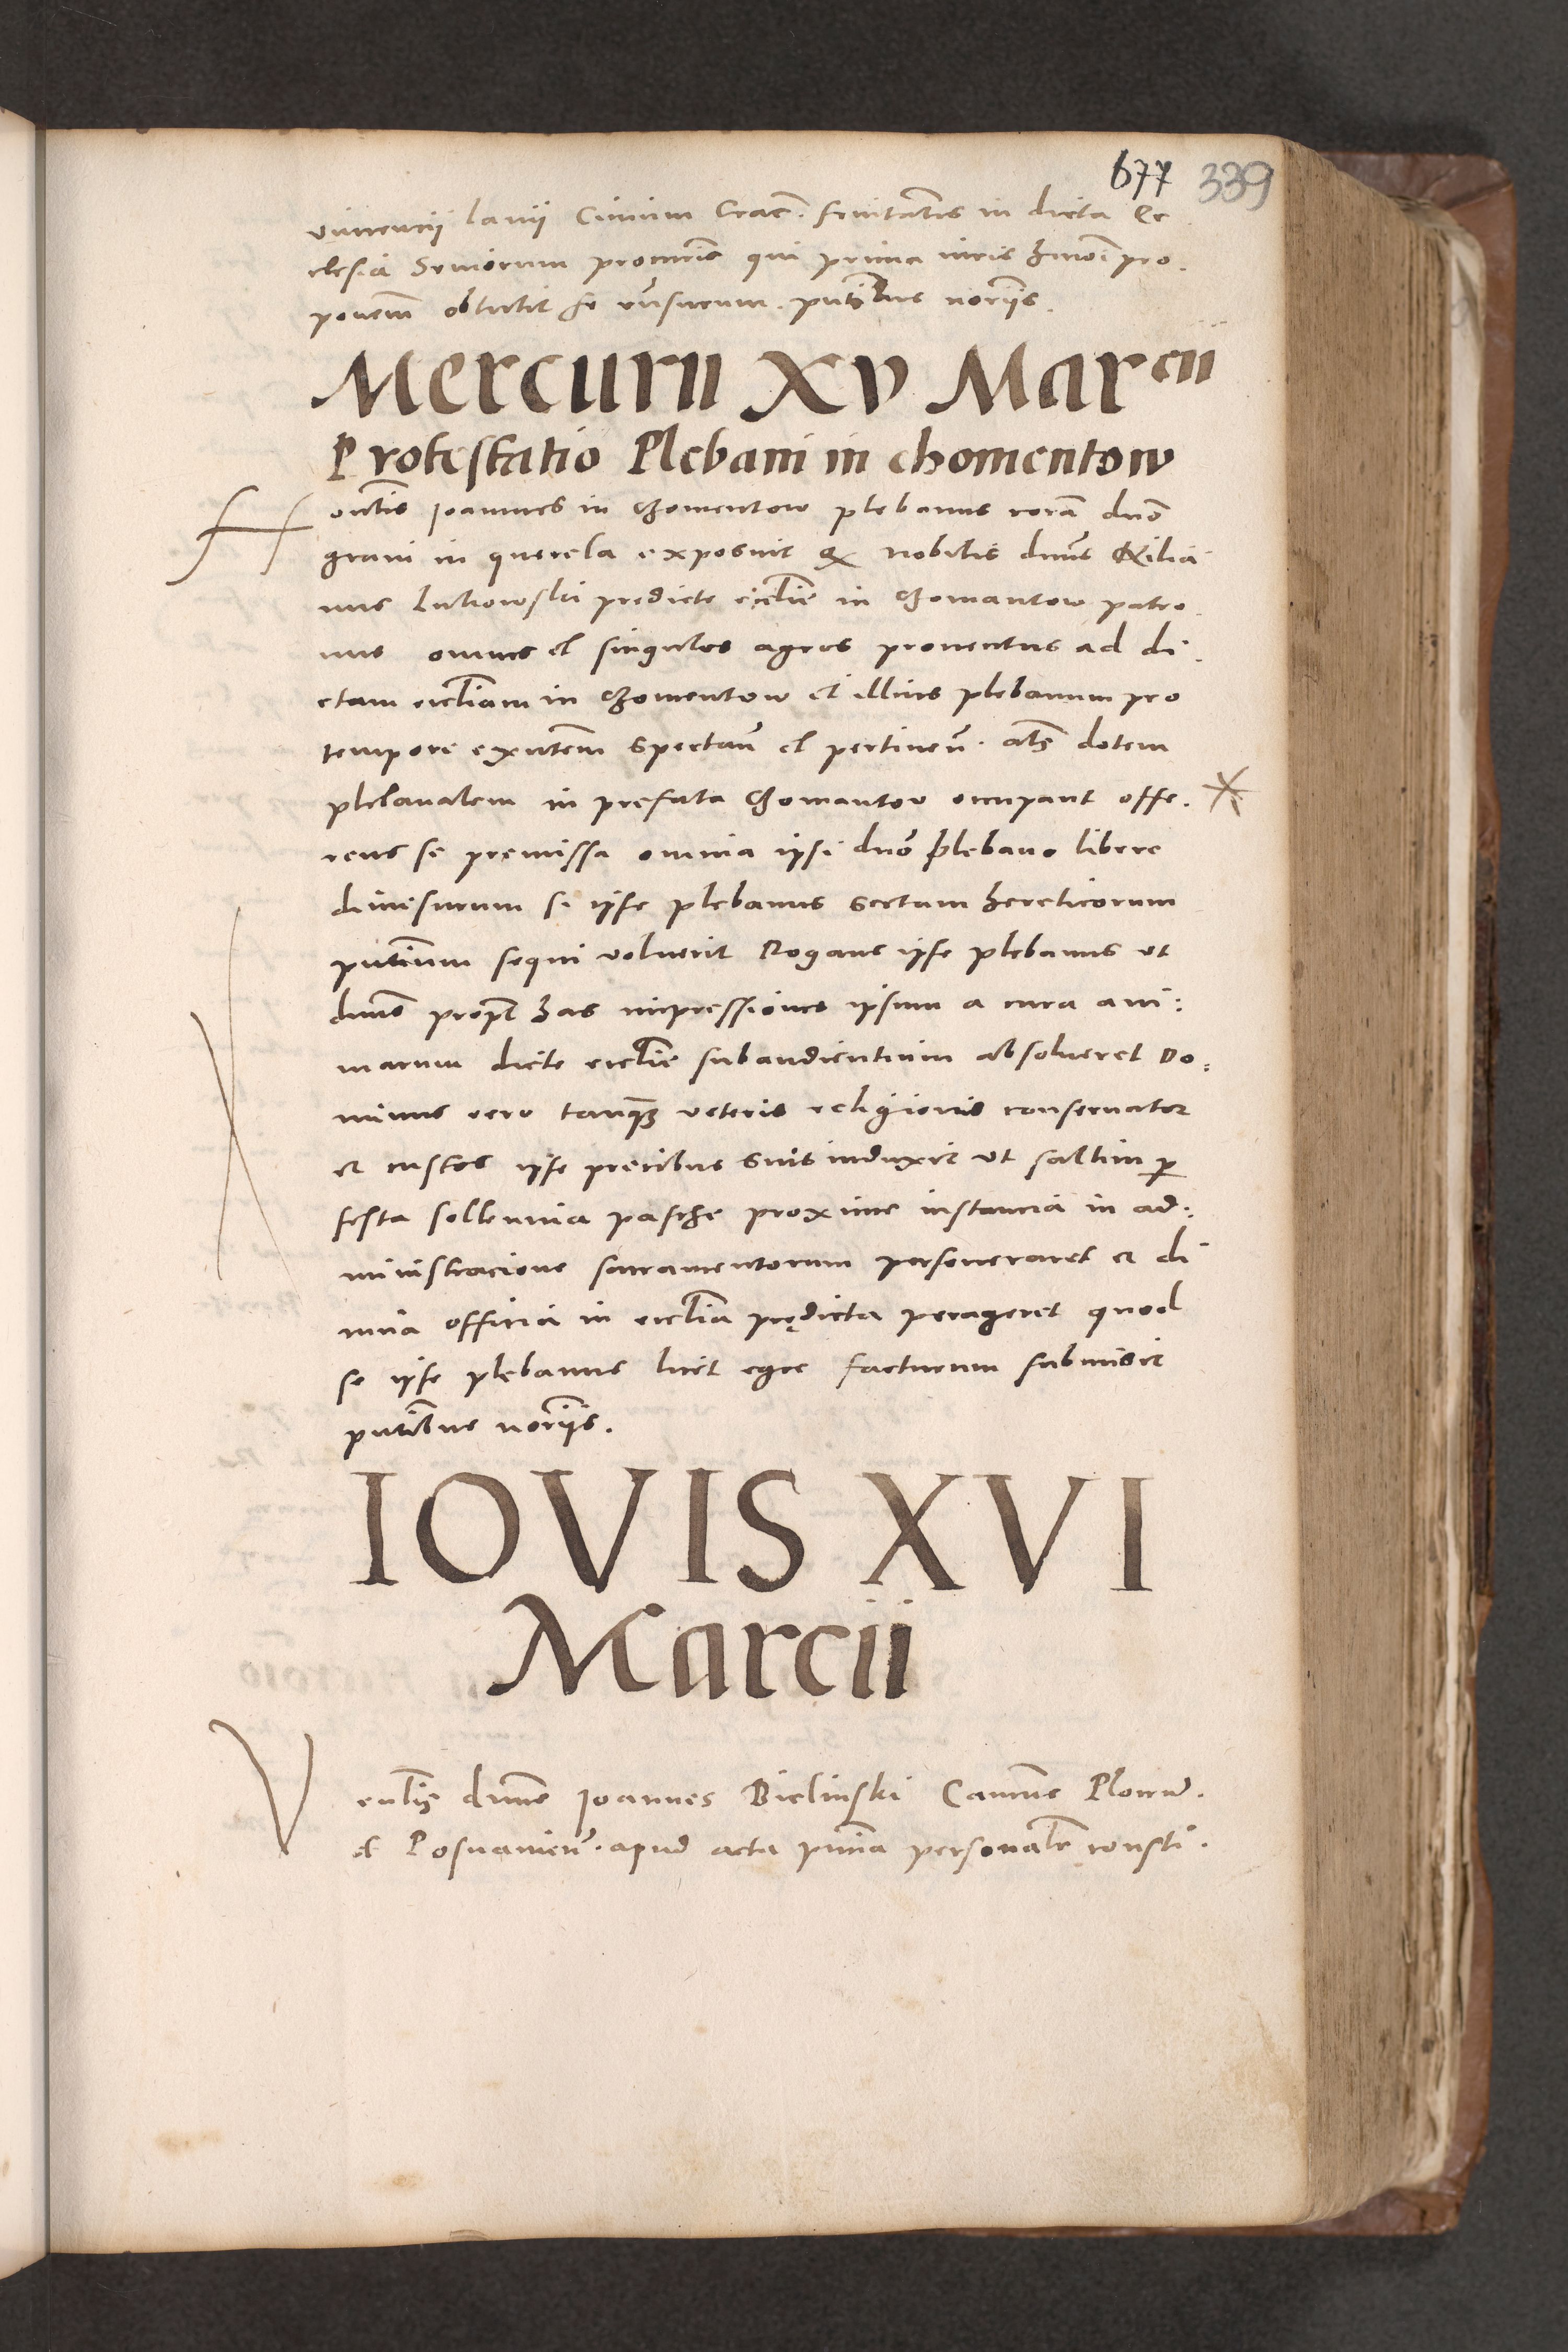 677 339
vincencii lanii Civium Crac̄. servitātis in dicta Ec
clesia Seniorum procuris qui prima iuris hmōi pro.
ponem̄ obtulit se cēnsurum. pntibus noriis.
Mercurii XV Marcii
Protestatio Plebani in chomentow
Honcīlis Joannes in Chomentow plebanus corā dnō
gravi in querela exposuit qͣ nobilis dnūs Kiliā
nus Lukowski predicte eccliē in Chomantow patro
nus omnes et singulos agros proventus ad di
ctam eccliam in Chomentow et illius plebanum pro
tempore exntem̄ spectan̄ et pertinen̄. als̄ dotem
plebanalem in prefata Chomantow occupant offe.
rens se premissa omnia ipsi dnō plebano libere
dimissurum si ipse plebanus sectam hereticorum
pntium̄ sequi voluerit Rogans ipse plebanus ut
dnūs propt̄ has impressiones ipsum a cura ani:
marum dicte eccliē subaudientium absolveret Do:
minus vero tanqꝫ veteris religionis conservator
et custos ipse precibus suis induxit ut saltim ꝑ
festa sollennia pasche proxime instancia in ad:
ministracione sacramentorum perseveraret et di
vina officia in ecclia prędicta perageret quod
se ipse plebanus licet egre facturum submisit
pntibus noriis.
IOVIS XVI
Marcii
Venblīs dnūs Joannes Bielinski Canous Plocen̄.
et Posnanien̄. apud acta pntia personalr̄ consti.